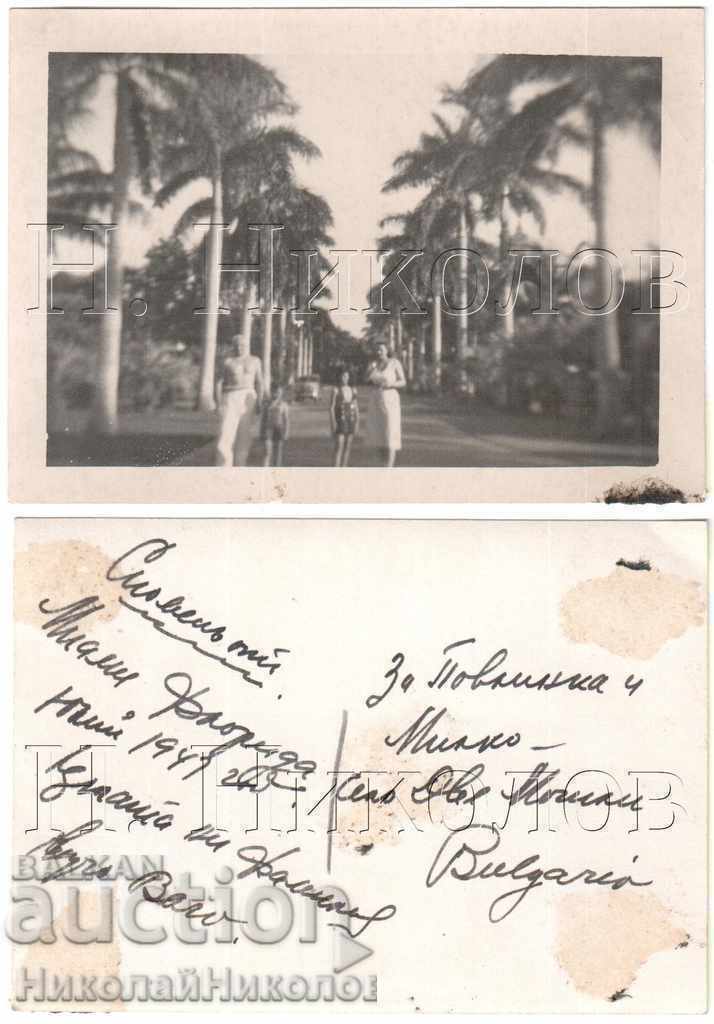 Н. Николов
Споменъ отъ
Миами Флорида
Юлий 1947 год.
Цялата ни фамилия
вуйчо Вато.
За Повлинка и
Милко -
село Две Могили
Bulgaria
Н. Николов
BALKAN
auction
НиколайНиколов